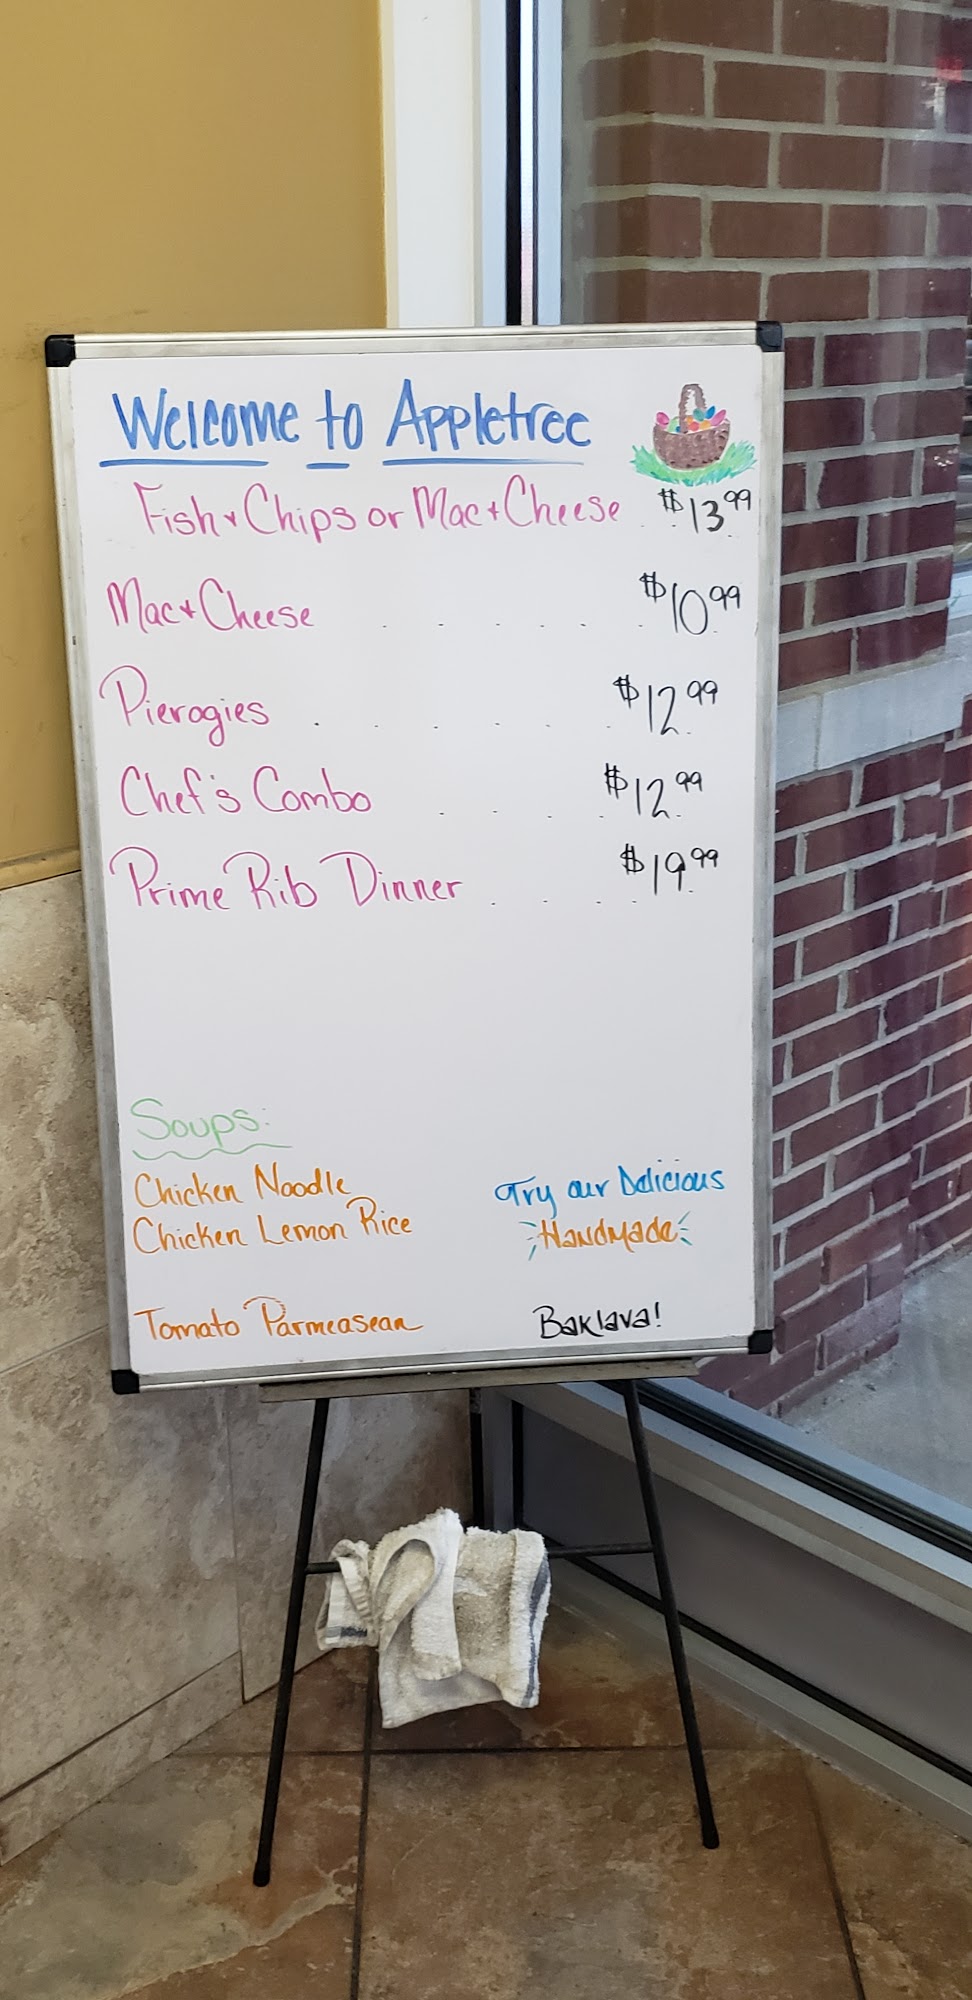 Welcome to Appletree
Fish + Chips or Mac + Cheese . $13.99
Mac + Cheese . . . . . . $10.99
Pierogies . . . . . . $12.99
Chef's Combo . . . . $12.99
Prime Rib Dinner . . . . $19.99
Soups:
Chicken Noodle
Chicken Lemon Rice
Tomato Parmeasean
Try our Delicious
Handmade
Baklava!